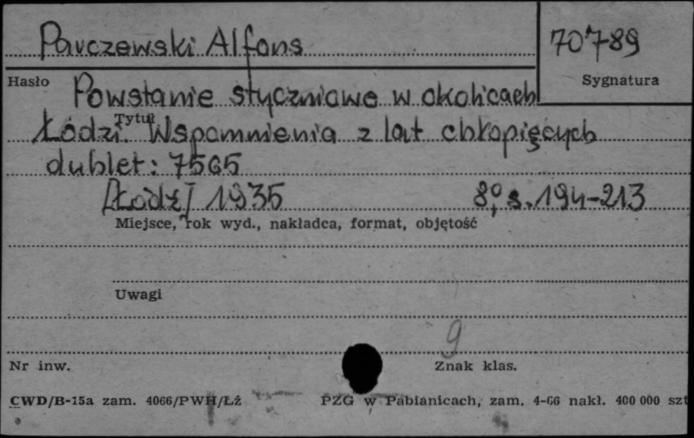 Parczewski Alfons
70789
Hasło
Sygnatura
Powstanie styczniowe w okolicach
Tytuł
Łodzi. Wspomnienia z lat chłopięcych
dublet: 7565
[Łódź] 1935 8°, s. 194-213
Miejsce, rok wyd., nakładca, format, objętość
Uwagi
9
Nr inw.
Znak klas.
CWD/B-15a zam. 4066/PWH/Łż
PZG w Pabianicach, zam. 4-66 nakł. 400 000 szt